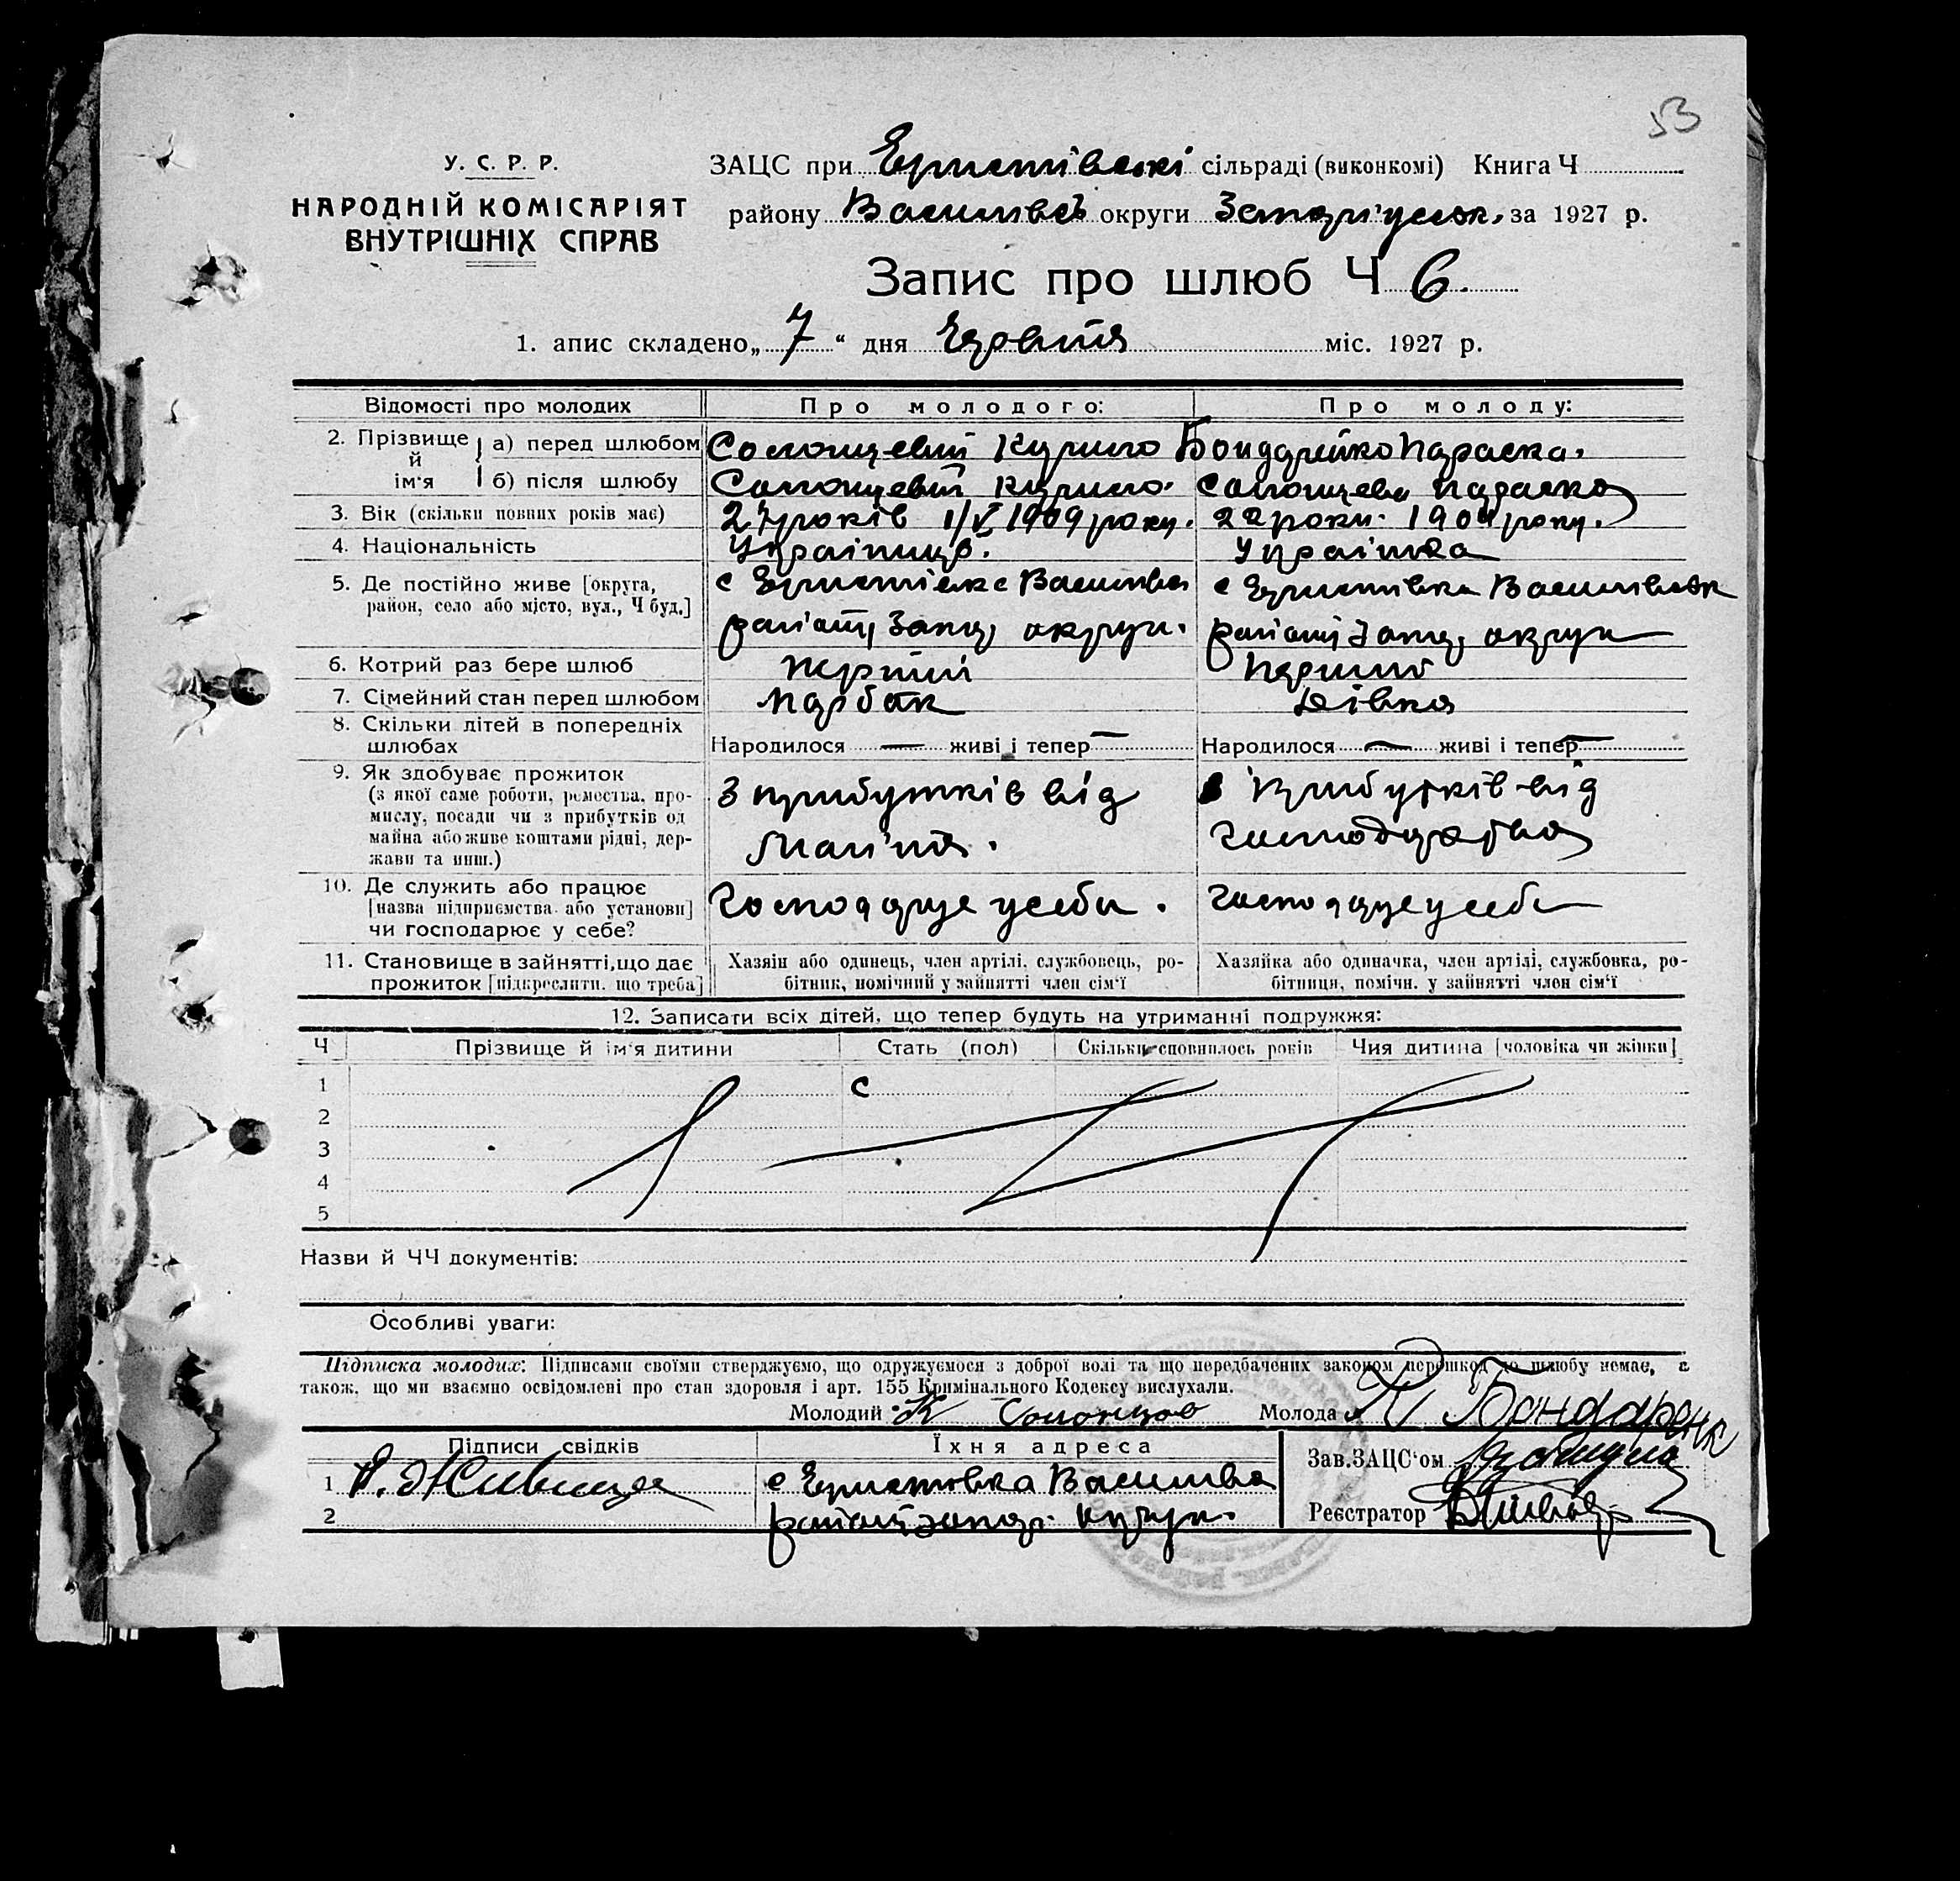 53
У. С. Р. Р.
НАРОДНІЙ КОМІСАРІЯТ
ВНУТРІШНІХ СПРАВ
ЗАЦС при Еристівській сільраді (виконкомі) Книга Ч
району Василівсь округи Запоріз. за 1927 р.
Запис про шлюб Ч 6.
1. апис складено „7“ дня Червня міс. 1927 р.
Відомості про молодих Про молодого: Про молоду:
2. Прізвище й ім'я а) перед шлюбом Кирило Бондаренко Параска.
б) після шлюбу Кирило. Параска
3. Вік (скільки повних років має) років 1/V 1909 року. 22 роки.
4. Національність Українець. Українка
5. Де постійно живе [округа, район, село або місто, вул., Ч буд.] с Еристівка с Еристівка
району Запор. округи. району Запор. округи
6. Котрий раз бере шлюб перший перший
7. Сімейний стан перед шлюбом парубок дівка
8. Скільки дітей в попередніх шлюбах Народилося — живі і тепер — Народилося — живі і тепер —
9. Як здобуває прожиток
(з якої саме роботи, ремества, про-
мислу, посади чи з прибутків од
майна або живе коштами рідні, дер-
жави та инш.)
З прибутків від
майна.
З прибутків від
господарства
10. Де служить або працює
[назва підприємства або установи]
чи господарює у себе?
Господарує у себе.
господарує у себе
11. Становище в зайнятті, що дає
прожиток [підкреслити. що треба]
Хазяїн або одинець, член артілі, службовець, ро-
бітник, помічний у зайнятті член сім'ї
Хазяйка або одиначка, член артілі, службовка, ро-
бітниця, помічн. у зайнятті член сім'ї
12. Записати всіх дітей, що тепер будуть на утриманні подружжя:
Ч Прізвище й ім'я дитини Стать (пол) Скільки сповнилось років Чия дитина [чоловіка чи жінки]
1 с
2
3
4
5
Назви й ЧЧ документів:
Особливі уваги:
Підписка молодих: Підписами своїми стверджуємо, що одружуємося з доброї волі та що передбачених законом перешкод до шлюбу немає, а
також, що ми взаємно освідомлені про стан здоровля і арт. 155 Кримінального Кодексу вислухали.
Молодий К Молода П Бондаренк
Підписи свідків Їхня адреса Зав. ЗАЦС'ом
1 с Еристовка
2 району Запор. округи. Реєстратор